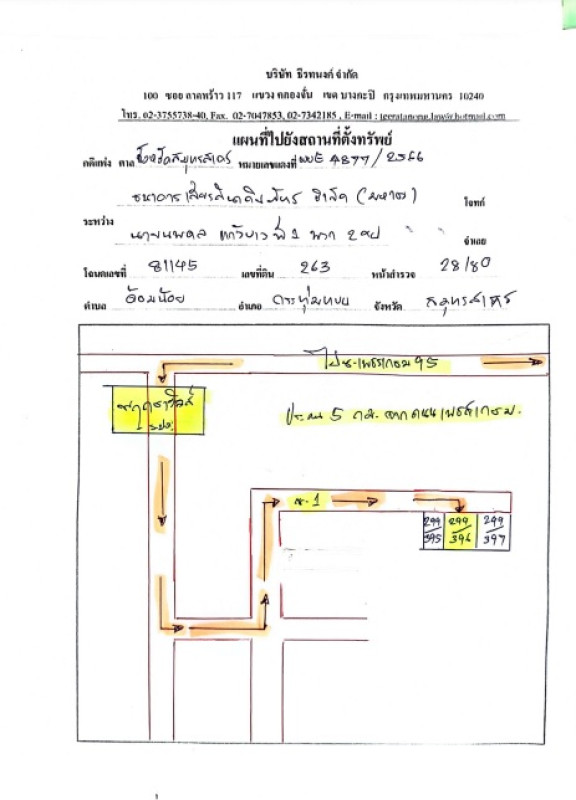 บริษัท ธีรทนงค์ จำกัด
100 ซอย ลาดพร้าว 117 แขวง คลองจั่น เขต บางกะปิ กรุงเทพมหานคร 10240
โทร. 02-3755738-40, Fax. 02-7047853, 02-7342185 , E-mail : teeratanong.law@hotmail.com
แผนที่ไปยังสถานที่ตั้งทรัพย์
คดีแพ่ง ศาล จังหวัดสมุทรสาคร หมายเลขแดงที่ ผบE 4877/2566
ธนาคารเกียรตินาคินภัทร จำกัด (มหาชน) โจทก์
ระหว่าง
นายนพดล ที่ 1 พวก 2 คน จำเลย
โฉนดเลขที่ 81145 เลขที่ดิน 263 หน้าสำรวจ 28/80
ตำบล อ้อมน้อย อำเภอ กระทุ่มแบน จังหวัด สมุทรสาคร
ไปซ.เพชรเกษม 95
ประมาณ 5 กม. จากถนนเพชรเกษม.
ซ.1
299/395 299/396 299/397